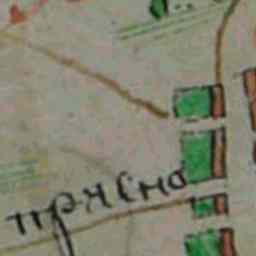 прясно